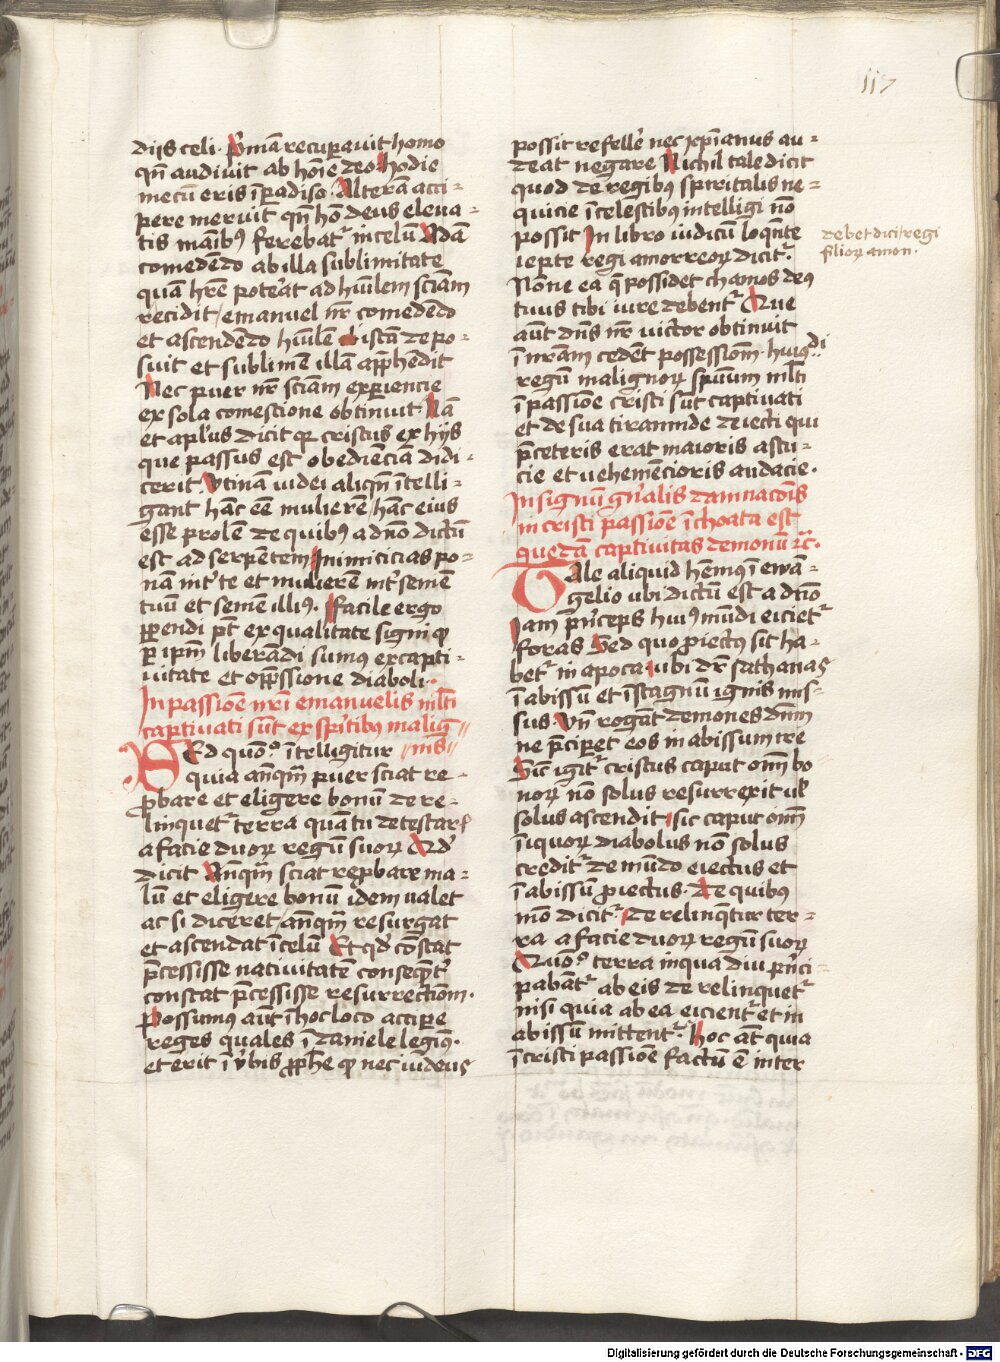 117
diis celi. Pͥmā recuꝑavit homo
qn̄ audivit ab hoīe deo Hodie
mecū eris ī ꝑadiso. Alterā acci-
pere meruit qn̄ hō deus eleva-
tis maībꝰ ferebatᷣ in celū Adā
comedēdo ab illa sublimitate
quā hr̄e poterat ad huīlem sciām
recidit / emanuel nr̄ comedēdo
et ascendēdo huīlē istā depo-
suit et sublimem illā app̄hēdit
Nec puer nr̄ sciām experiencie
ex sola comestione obtinuit. Nā
et apl'us dicit qꝫ cristus ex hijs
que passus est obediēciā didi-
cerit. Vtinā iudei aliqn̄ ītelli-
gant hāc eē mulierē / hāc eius
esse prolē de quibꝰ a dn̄o dictū
est ad serpētem Inimicicias po-
nā intᷣ te et mulierē intᷣ semē
tuū et semē illiꝰ. Facile ergo
ꝑpendi pt̄ ex qualitate signi qꝫ
ꝑ ipm̄ liberādi sumus ex capti-
vitate et opp̄ssione diaboli.
In passiōe nr̄i emanuelis ml̄ti
captivati sūt ex spiritibus malig-
nis
Sed quōᵒ ītelligitur
quia an̄qm̄ puer sciat re-
ꝓbare et eligere bonū dere-
linquetᷣ terra quā tu detestaris
a facie duoꝝ regū suoꝝ Ad
dicit An̄qm̄ sciat reꝓbare ma-
lū et eligere bonū idem valet
ac si diceret / an̄qm̄ resurgat
et ascendat ī celū Et qd̄ cōstat
p̄cessisse nativitatē conseqn̄tᷣ
constat p̄cessisse resurrectiōem.
Possumꝰ aūt ī hoc loco accipere
reges quales ī daniele legimꝰ.
et erit ī v̓bis ꝓphē qꝫ nec iudeus
possit refelle nec xp̄ianus au-
deat negare Nichil tale dicit
quod de regibꝰ spiritalis ne-
quicie ī celestibꝰ intelligi nō
possit In libro iudicū loqn̄te
iepte regi amorreoꝝ dicitᷣ.
debet dici regi
filioꝝ amon.
Nōne ea q̄ possidet chamos deꝰ
tuus tibi iure debentᷣ Que
aūt dn̄s nr̄ victor obtinuit
ī nr̄am cedent possessiōem. huiꝰdi
regū malignoꝝ spūum ml̄ti
ī passiōe cristi sūt captivati
et de sua tirannide deiecti qui
p̄ceteris erāt maioris astu-
cie et vehemēcioris audacie.
In signū gn̄alis damnacōis
in cristi passiōe īchoata est
quedā captivitas demonū ꝛc̄.
Tale aliquid hēmꝰ ī ewā-
gelio ubi dictū est a dn̄o
Iam pͥnceps huiꝰ mūdi eicietᷣ
foras Sed quo ꝓiectꝰ sit ha-
betᷣ in apoca. ubi dr̄ sathanas
ī abissū et ī stagnū ignis mis-
sus Vn̄ rogāt demones dn̄m
ne p̄ciperet eos in abissum ire
Sic igitᷣ cristus caput om̄ bo
noꝝ nō solus resurrexit vl̓
solus ascendit. sic caput om̄
īiquoꝝ diabolus nō solus
creditᷣ de mūdo eiectus et
ī abissū ꝓiectus. De quibꝰ
mō dicitᷣ. Derelinq̄tur ter-
ra a facie duoꝝ regū suoꝝ
Quōᵒ terra in qua diu pͥnci-
pabātᷣ ab eis derelinquetᷣ
nisi quia ab ea eicientᷣ et in
abissū mittentᷣ. Hoc āt quia
ī cristi passiōe factū ē inter
Digitalisierung gefördert durch die Deutsche Forschungsgemeinschaft - DFG